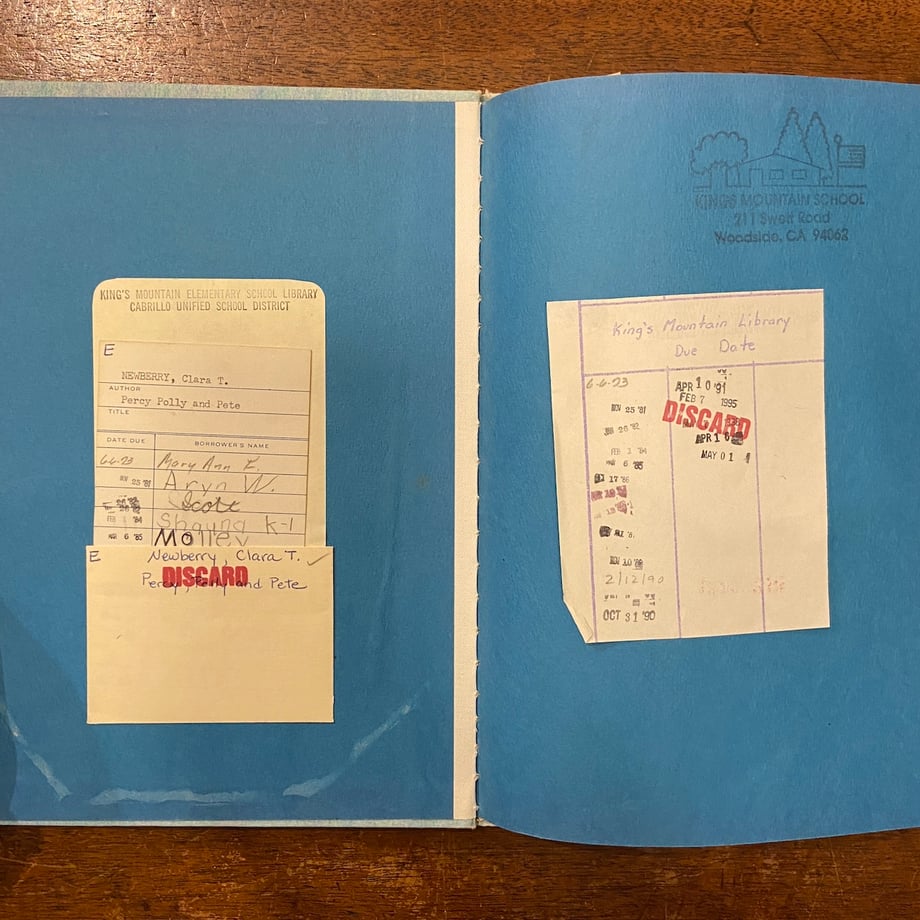 KING'S MOUNTAIN ELEMENTARY SCHOOL LIBRARY
CABRILLO UNIFIED SCHOOL DISTRICT
E
NEWBERRY, Clara T.
AUTHOR
Percy Polly and Pete
TITLE
DATE DUE
BORROWER'S NAME
6-6-23 Mary Ann E.
NOV 25 '81 Aryn W.
Scott
FEB 1 '84 Shauna K-1
MAR 6 '85 Molley
E Newberry, Clara T.
DISCARD
Percy, Polly and Pete
KING'S MOUNTAIN SCHOOL
211 Swett Road
Woodside, CA 94062
King's Mountain Library
Due Date
6-6-23
NOV 25 '81
JAN 26 '82
FEB 1 '84
MAR 6 '85
17 '86
NOV 10
2/12/90
OCT 31 '90
APR 10 '91
FEB 7 1995
DISCARD
APR 1
MAY 01